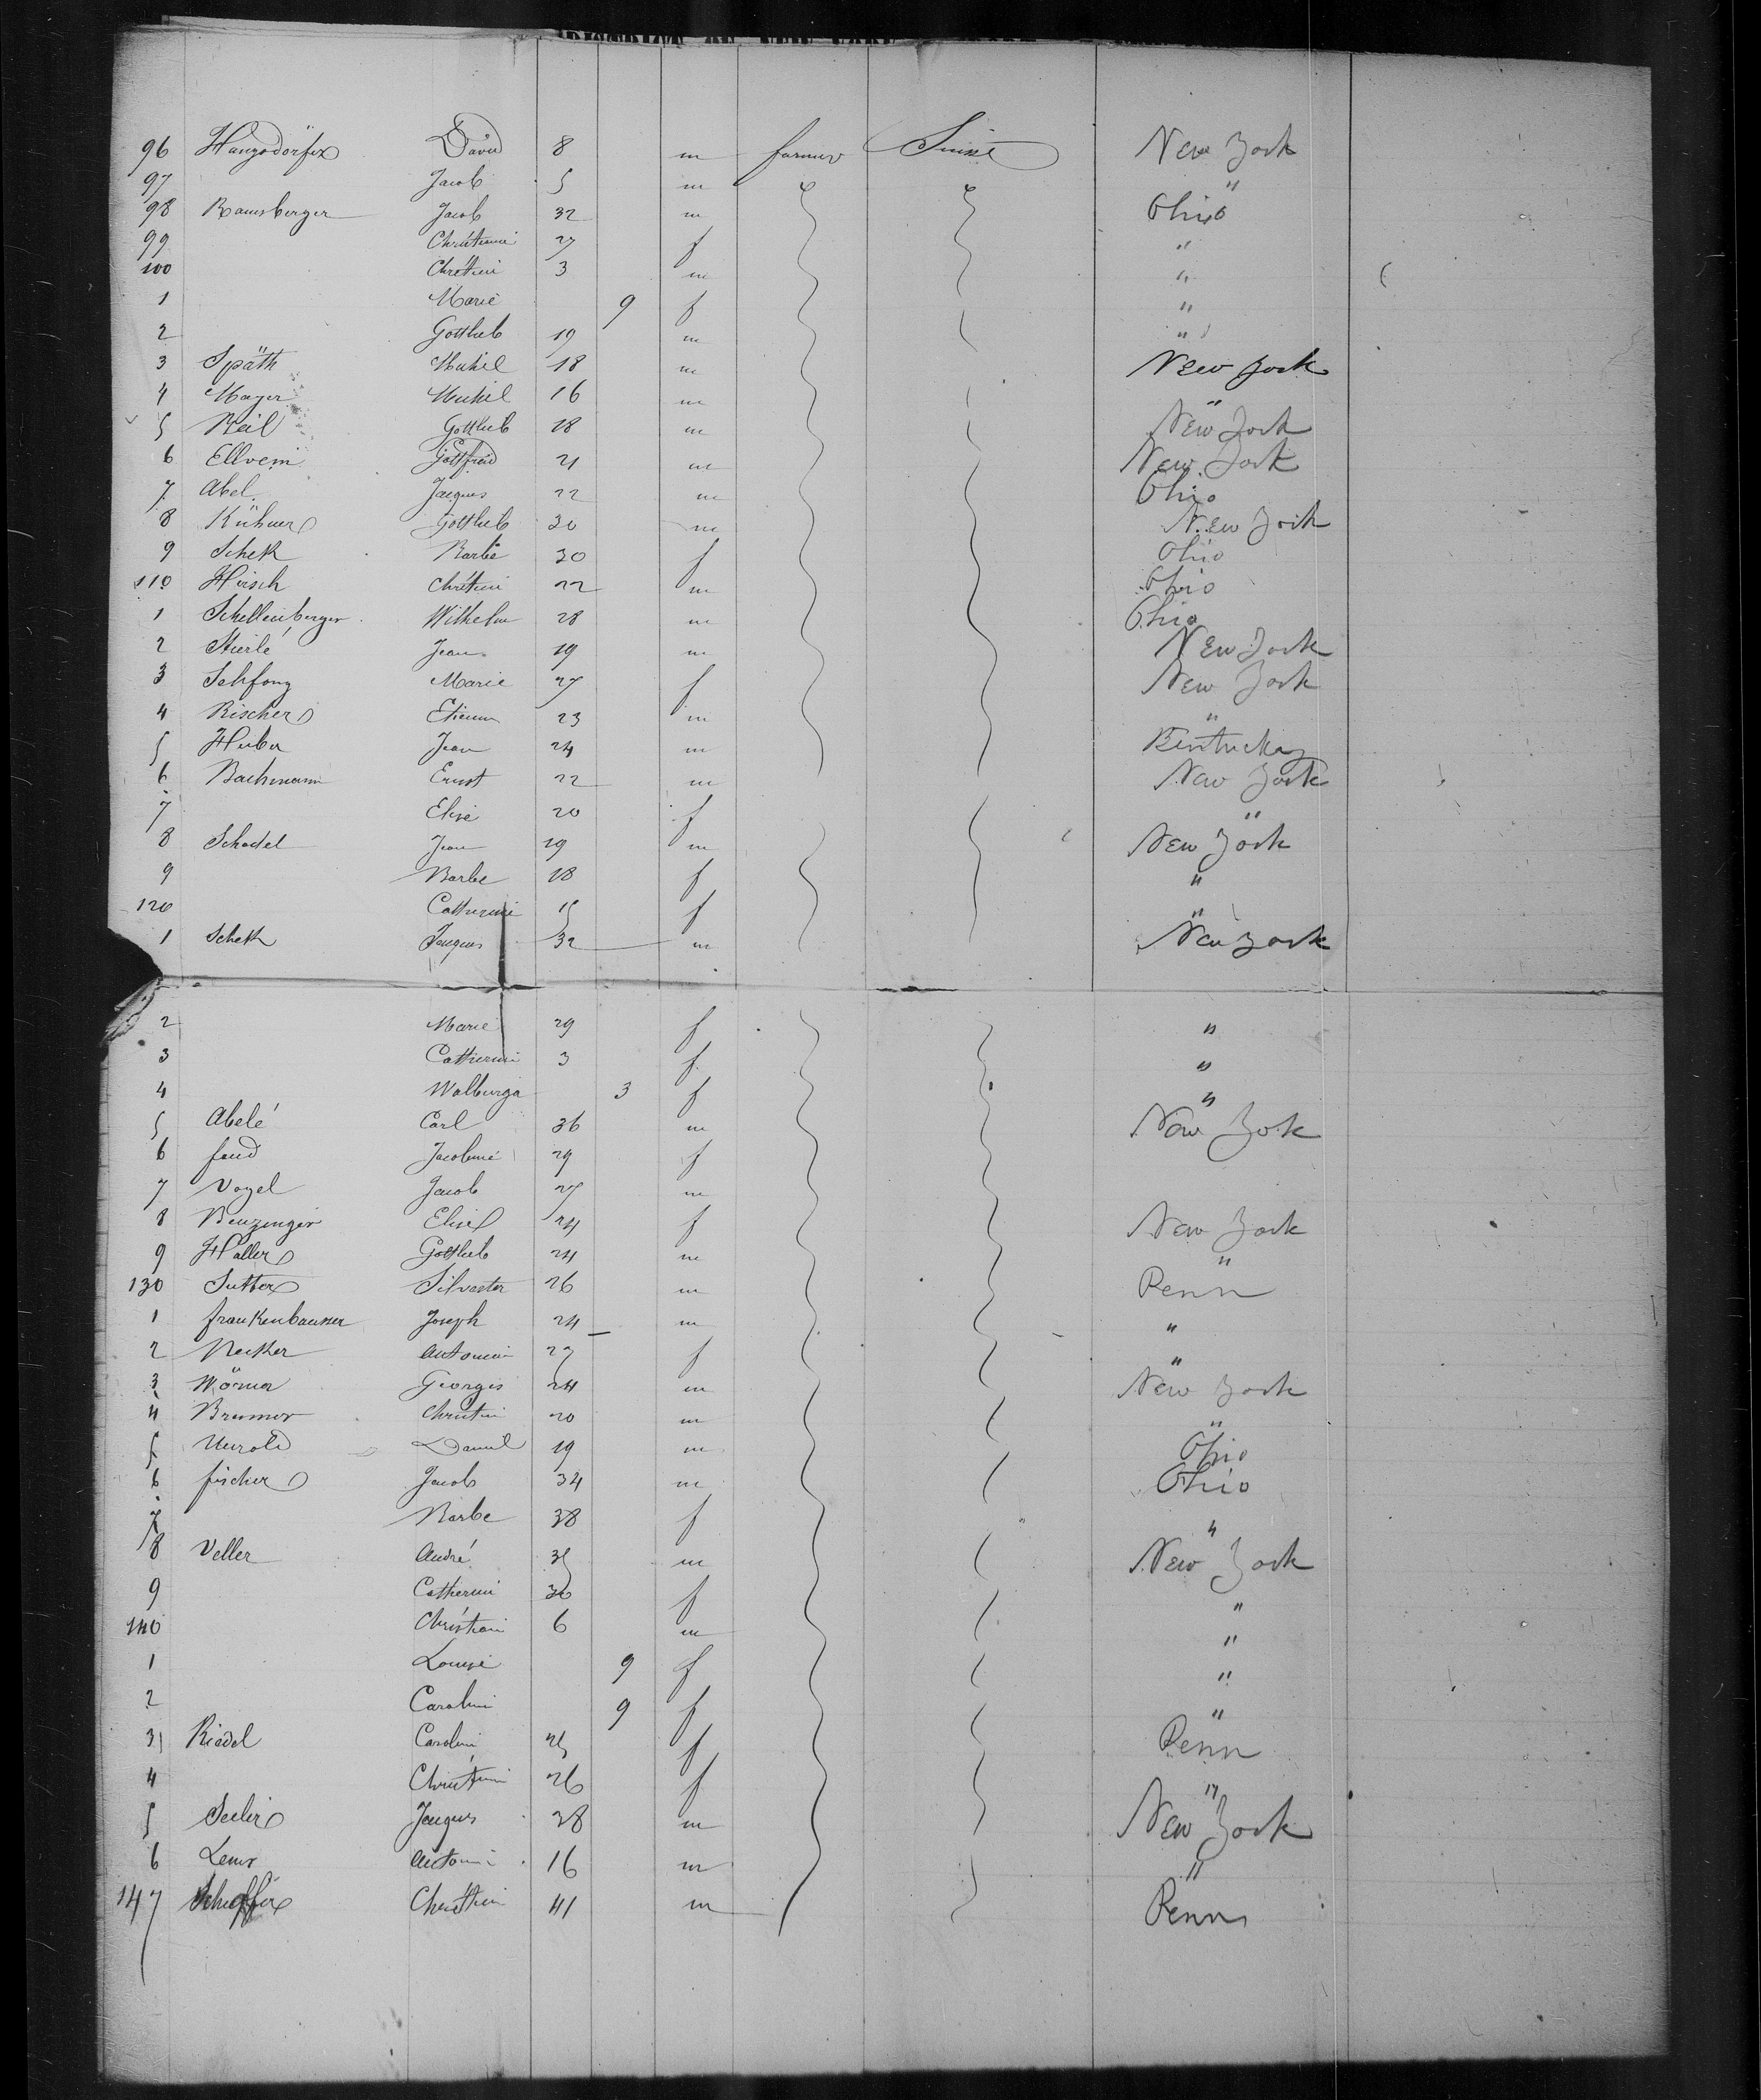 96 Hanzodörfer David 8 m farmer Suisse New York
97 Jacob 5 m "
98 Ramsberger Jacob 32 m Ohio
99 Christiane 27 f "
100 Chrétien 3 m "
1 Marie 9 f "
2 Gottlieb 19 m "
3 Späth Michel 18 m New York
4 Mayer Michel 16 m "
5 Keil Gottlieb 28 m New York
6 Ellvein Gottfried 21 m New York
7 Abel Jacques 22 m Ohio
8 Kühner Gottlieb 30 m New York
9 Schek Barbe 30 f Ohio
110 Hirsch Chrétien 22 m Ohio
1 Schellenberger Wilhelm 28 m Ohio
2 Stierlé Jean 19 m New York
3 Schfong Marie 27 f New York
4 Rischer Etienne 23 m "
5 Huber Jean 24 m Kentucky
6 Bachmann Ernst 22 m New York
7 Elise 20 f "
8 Schadel Jean 29 m New York
9 Barbe 28 f "
120 Catherine 15 f "
1 Schek Jacques 32 m New York
2 Marie 29 f "
3 Catherine 3 f "
4 Walburga 3 f "
5 Abelé Carl 36 m New York
6 Jacobine 29 f
7 Vogel Jacob 27 m
8 Benzinger Elise 24 f New York
9 Haller Gottlieb 24 m "
130 Sutter Silvester 26 m Penn
1 frankenbauser Joseph 24 m "
2 Necker Antonin 27 f "
3 Wörner Georges 24 m New York
4 Brenner Christien 20 m "
5 Daniel 19 m Ohio
6 fischer Jacob 34 m Ohio
7 Barbe 38 f "
8 Veller André 35 m New York
9 Catherine 30 f "
140 Christian 6 m "
1 Louise 9 f "
2 Caroline 9 f "
3 Riedel Caroline 25 f Penn
4 Christine 26 f "
5 Seeler Jacques 28 m New York
6 Antoine 16 m "
147 Scheffer Christien 41 m Penn